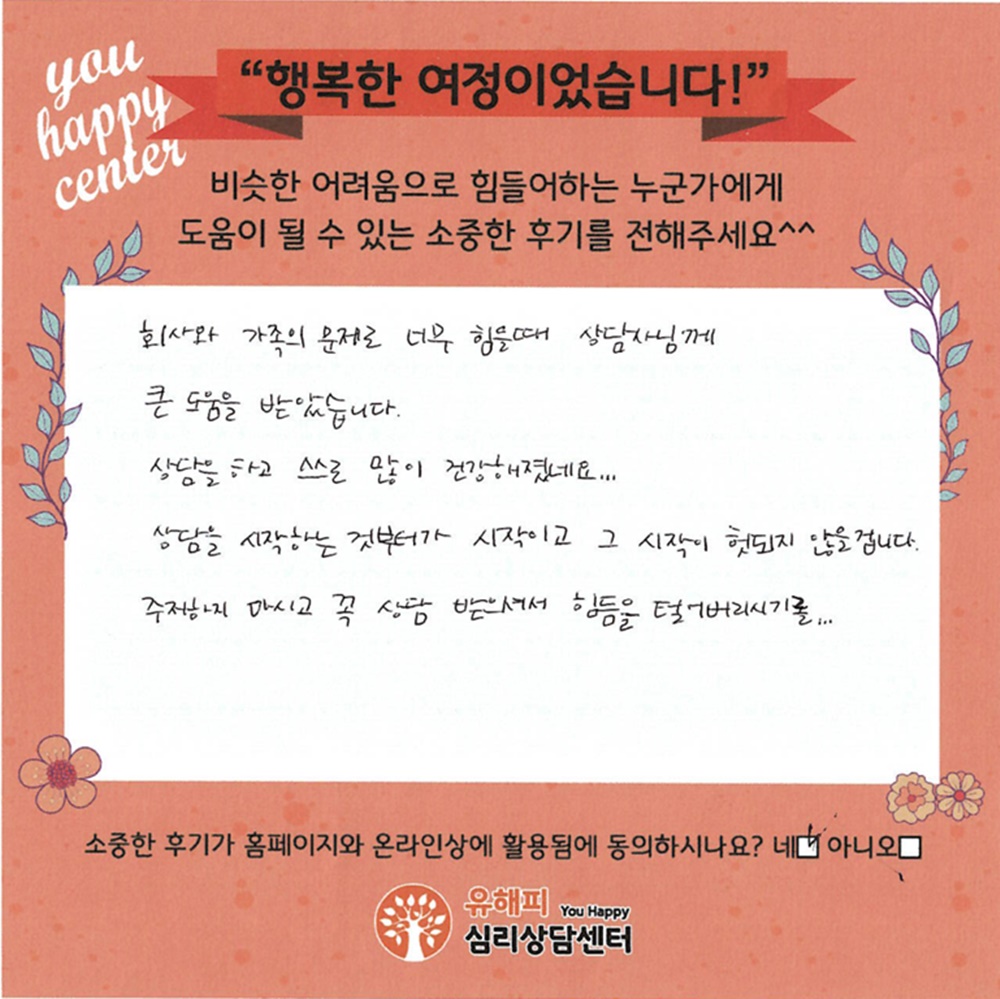 you
happy
center
“행복한 여정이었습니다!”
비슷한 어려움으로 힘들어하는 누군가에게
도움이 될 수 있는 소중한 후기를 전해주세요^^
회사와 가족의 문제로 너무 힘들때 상담자님께
큰 도움을 받았습니다.
상담을 하고 스스로 많이 건강해졌네요...
상담을 시작하는 것부터가 시작이고 그 시작이 헛되지 않을겁니다.
주저하지 마시고 꼭 상담 받으셔서 힘듬을 털어버리시기를...
소중한 후기가 홈페이지와 온라인상에 활용됨에 동의하시나요? 네 아니오
유해피 You Happy
심리상담센터